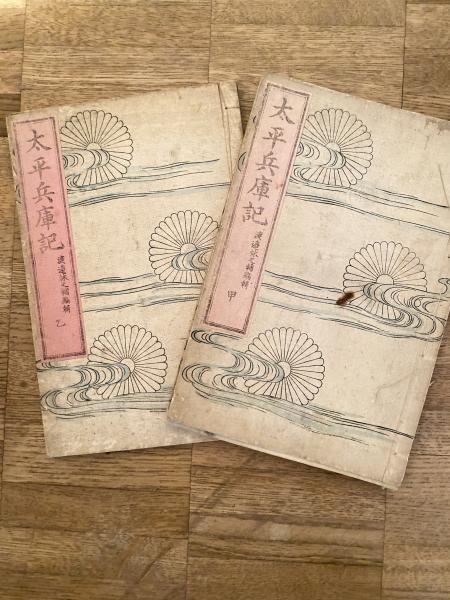 太平兵庫記
渡邊 之 編輯
乙
太平兵庫記
渡邊 之 編輯
甲